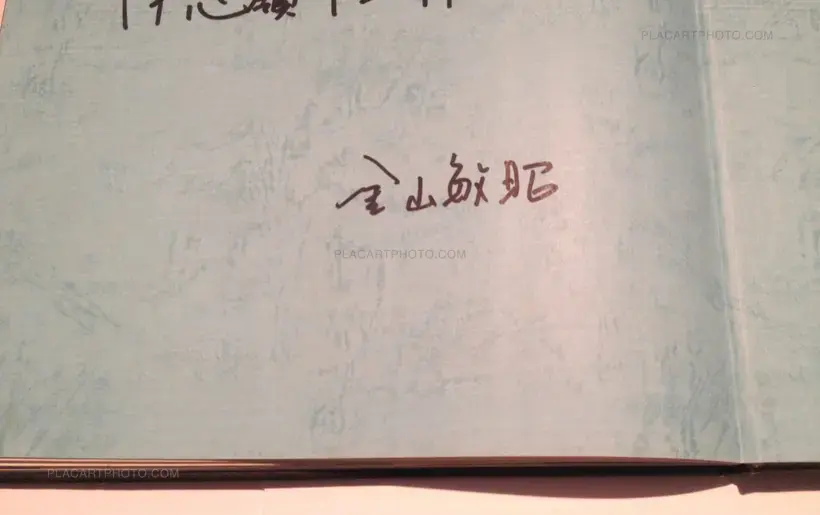 PLACARTPHOTO.COM
金山敏昭
PLACARTPHOTO.COM
PLACARTPHOTO.COM